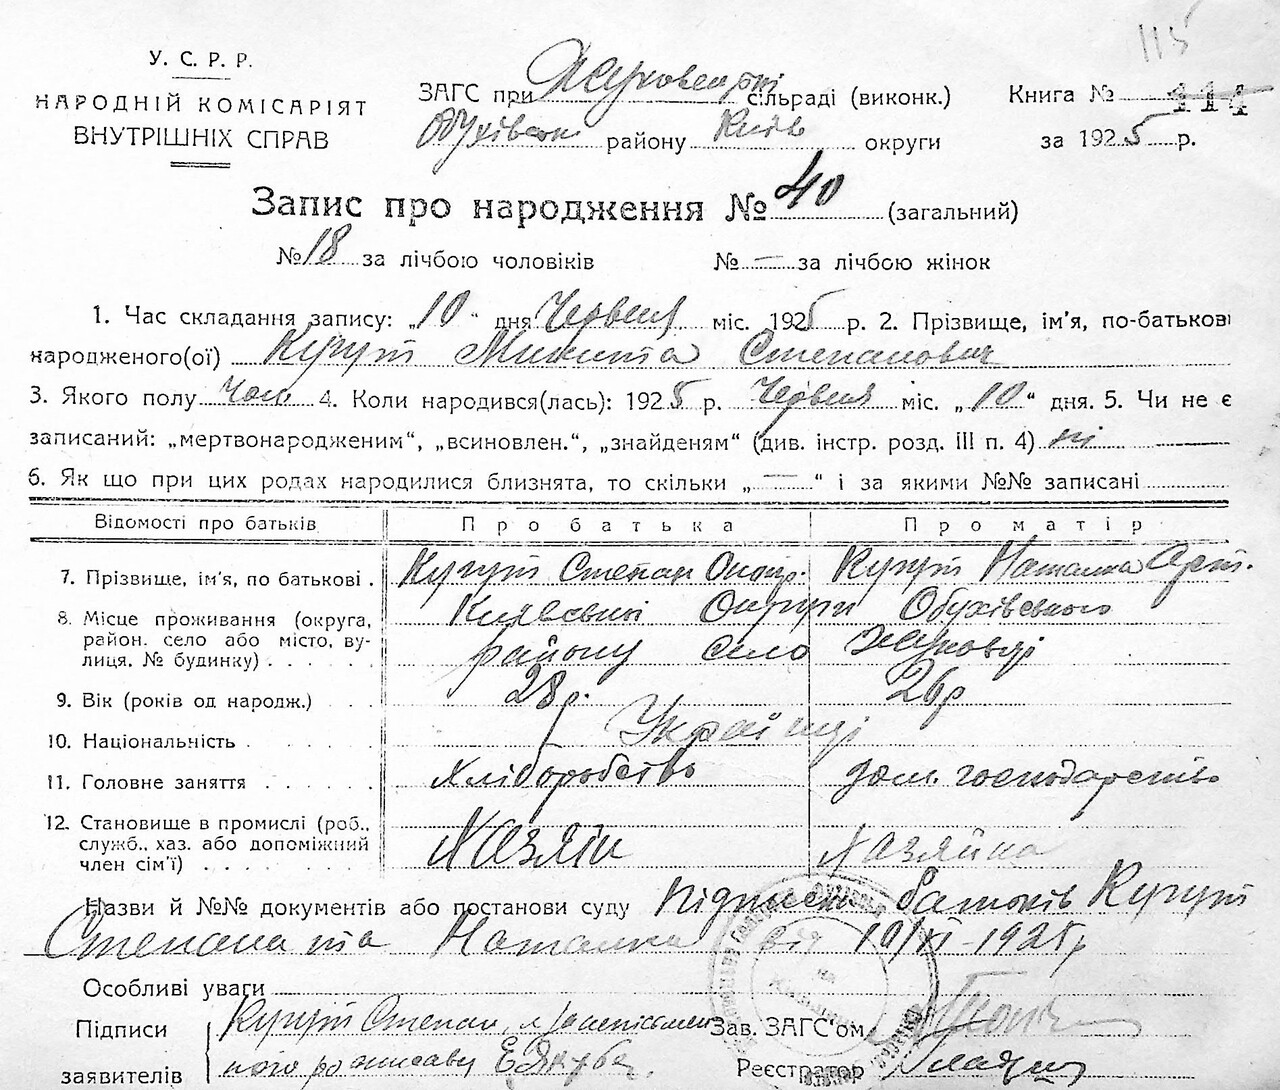 115
У. С. Р. Р.
НАРОДНІЙ КОМІСАРІЯТ
ВНУТРІШНІХ СПРАВ
ЗАГС при сільраді (виконк.)
району Київ округи
Книга № 114
за 1925 р.
Запис про народження № 40 (загальний)
№ 18 за лічбою чоловіків № — за лічбою жінок
1. Час складання запису: „10“ дня Червня міс. 1925 р. 2. Прізвище, ім'я, по-батькові
народженого(ої) Кугут Микита Степанович
3. Якого полу Чол 4. Коли народився(лась): 1925 р. Червня міс. „10“ дня. 5. Чи не є
записаний: „мертвонародженим“, „всиновлен.“, „знайденям“ (див. інстр. розд. III п. 4) ні
6. Як що при цих родах народилися близнята, то скільки „—“ і за якими №№ записані
Відомості про батьків Про батька Про матір
7. Прізвище, ім'я, по батькові . Кугут Степан Кугут Наталка Арт.
8. Місце проживання (округа, район. село або місто, вулиця. № будинку) . . . . . Київської Округи Обухівського
району село Жуковці
9. Вік (років од народж.) . . . 28 р. 26 р
10. Національність . . . . . . Українці
11. Головне заняття . . . . . . Хліборобство дом. господарство
12. Становище в промислі (роб., служб., хаз. або допоміжний член сім'ї) . . . . . . . . Хазяін Хазяйка
Назви й №№ документів або постанови суду Підписи батьків Кугут
Степана та Наталки від 10/VI-1925 р
Особливі уваги
Підписи
заявителів
Кугут Степан,
Зав. ЗАГС'ом
Реєстратор